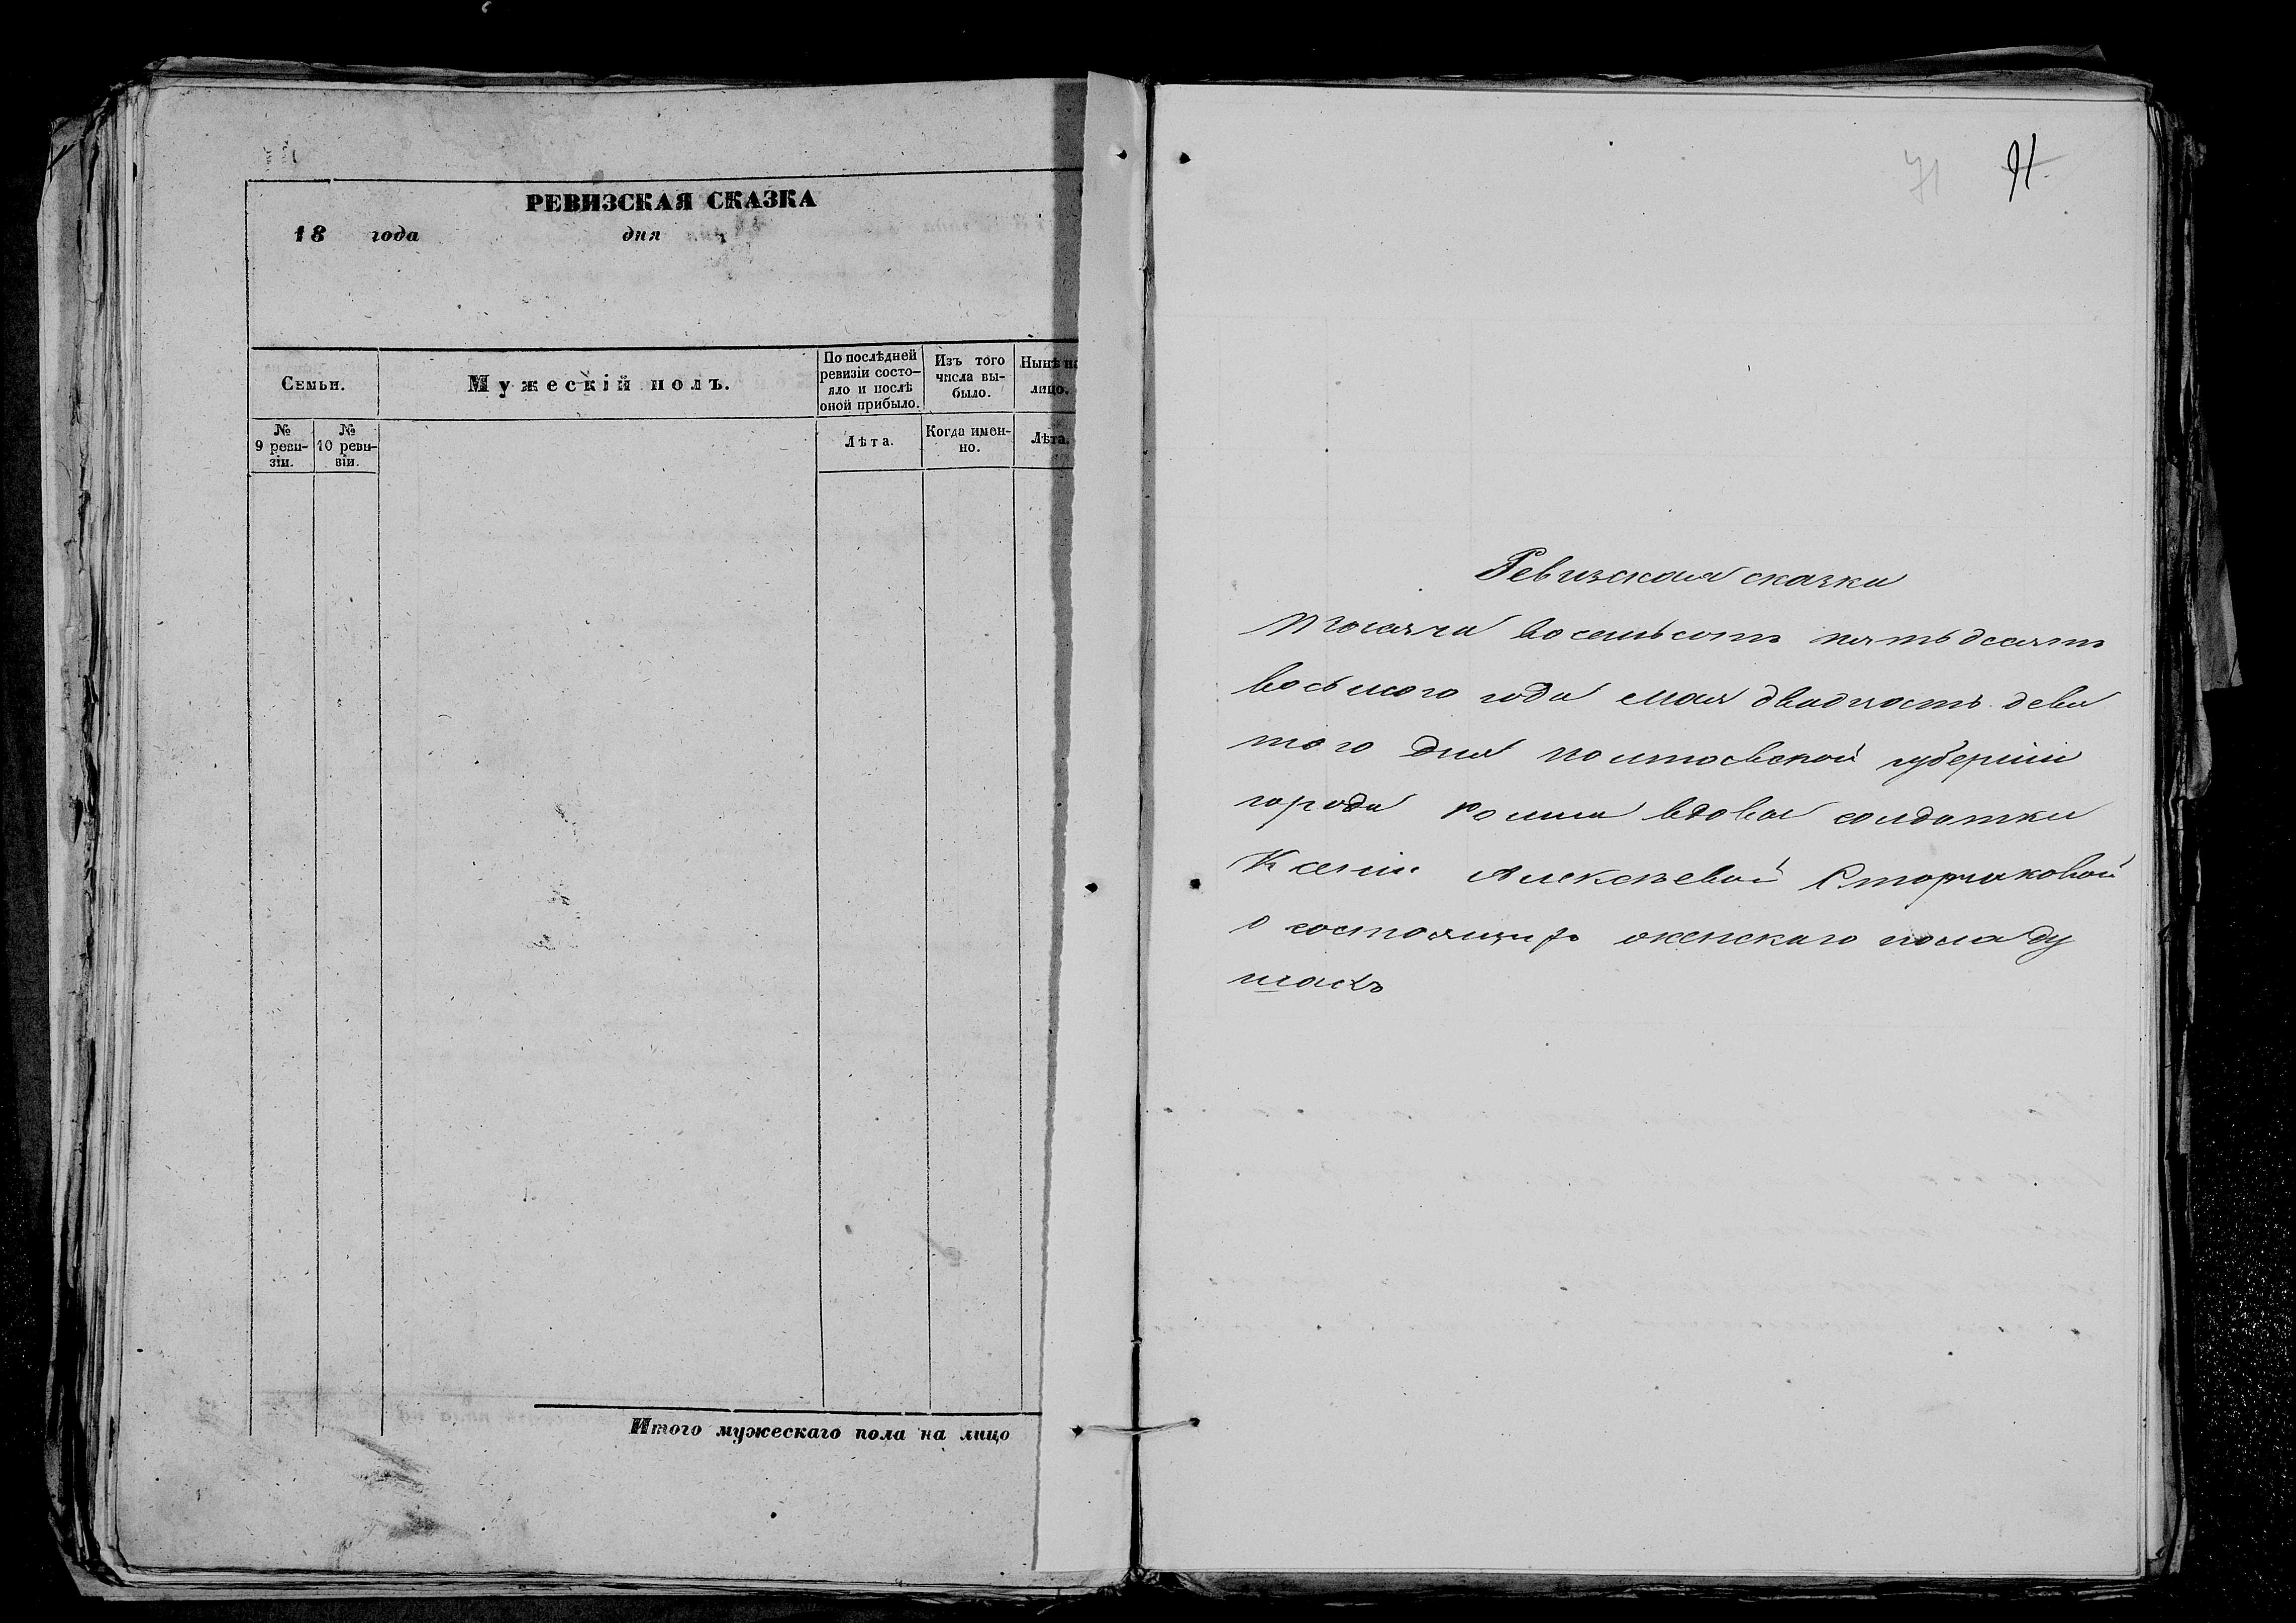 РЕВИЗСКАЯ СКАЗКА
18 года дня
Семьи.
Мужескій полъ.
По послѣдней ревизіи состо-
яло и послѣ
оной прибыло.
Изъ того
числа вы-
было.
Нынѣ на
лицо.
№
9 реви-
зіи.
№
10 реви-
зіи.
Лѣта.
Когда имен-
но.
Лѣта.
Итого мужескаго пола на лицо
71 91
Ревизская сказка
тысяча восемьсотъ пятьдесятъ
восьмого года мая двадцать девя
того дня полтавской губерніи
города ромна вдовы солдатки
Ксеніи Алексѣевой Сторчаковой
о состоящихъ женскаго пола ду
шахъ